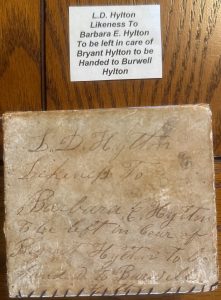 L.D. Hylton
Likeness To
Barbara E. Hylton
To be left in care of
Bryant Hylton to be
Handed to Burwell
Hylton
L D H
Likeness To
Barbara E Hylton
to be left in care of
Hylton to be
to Burwell